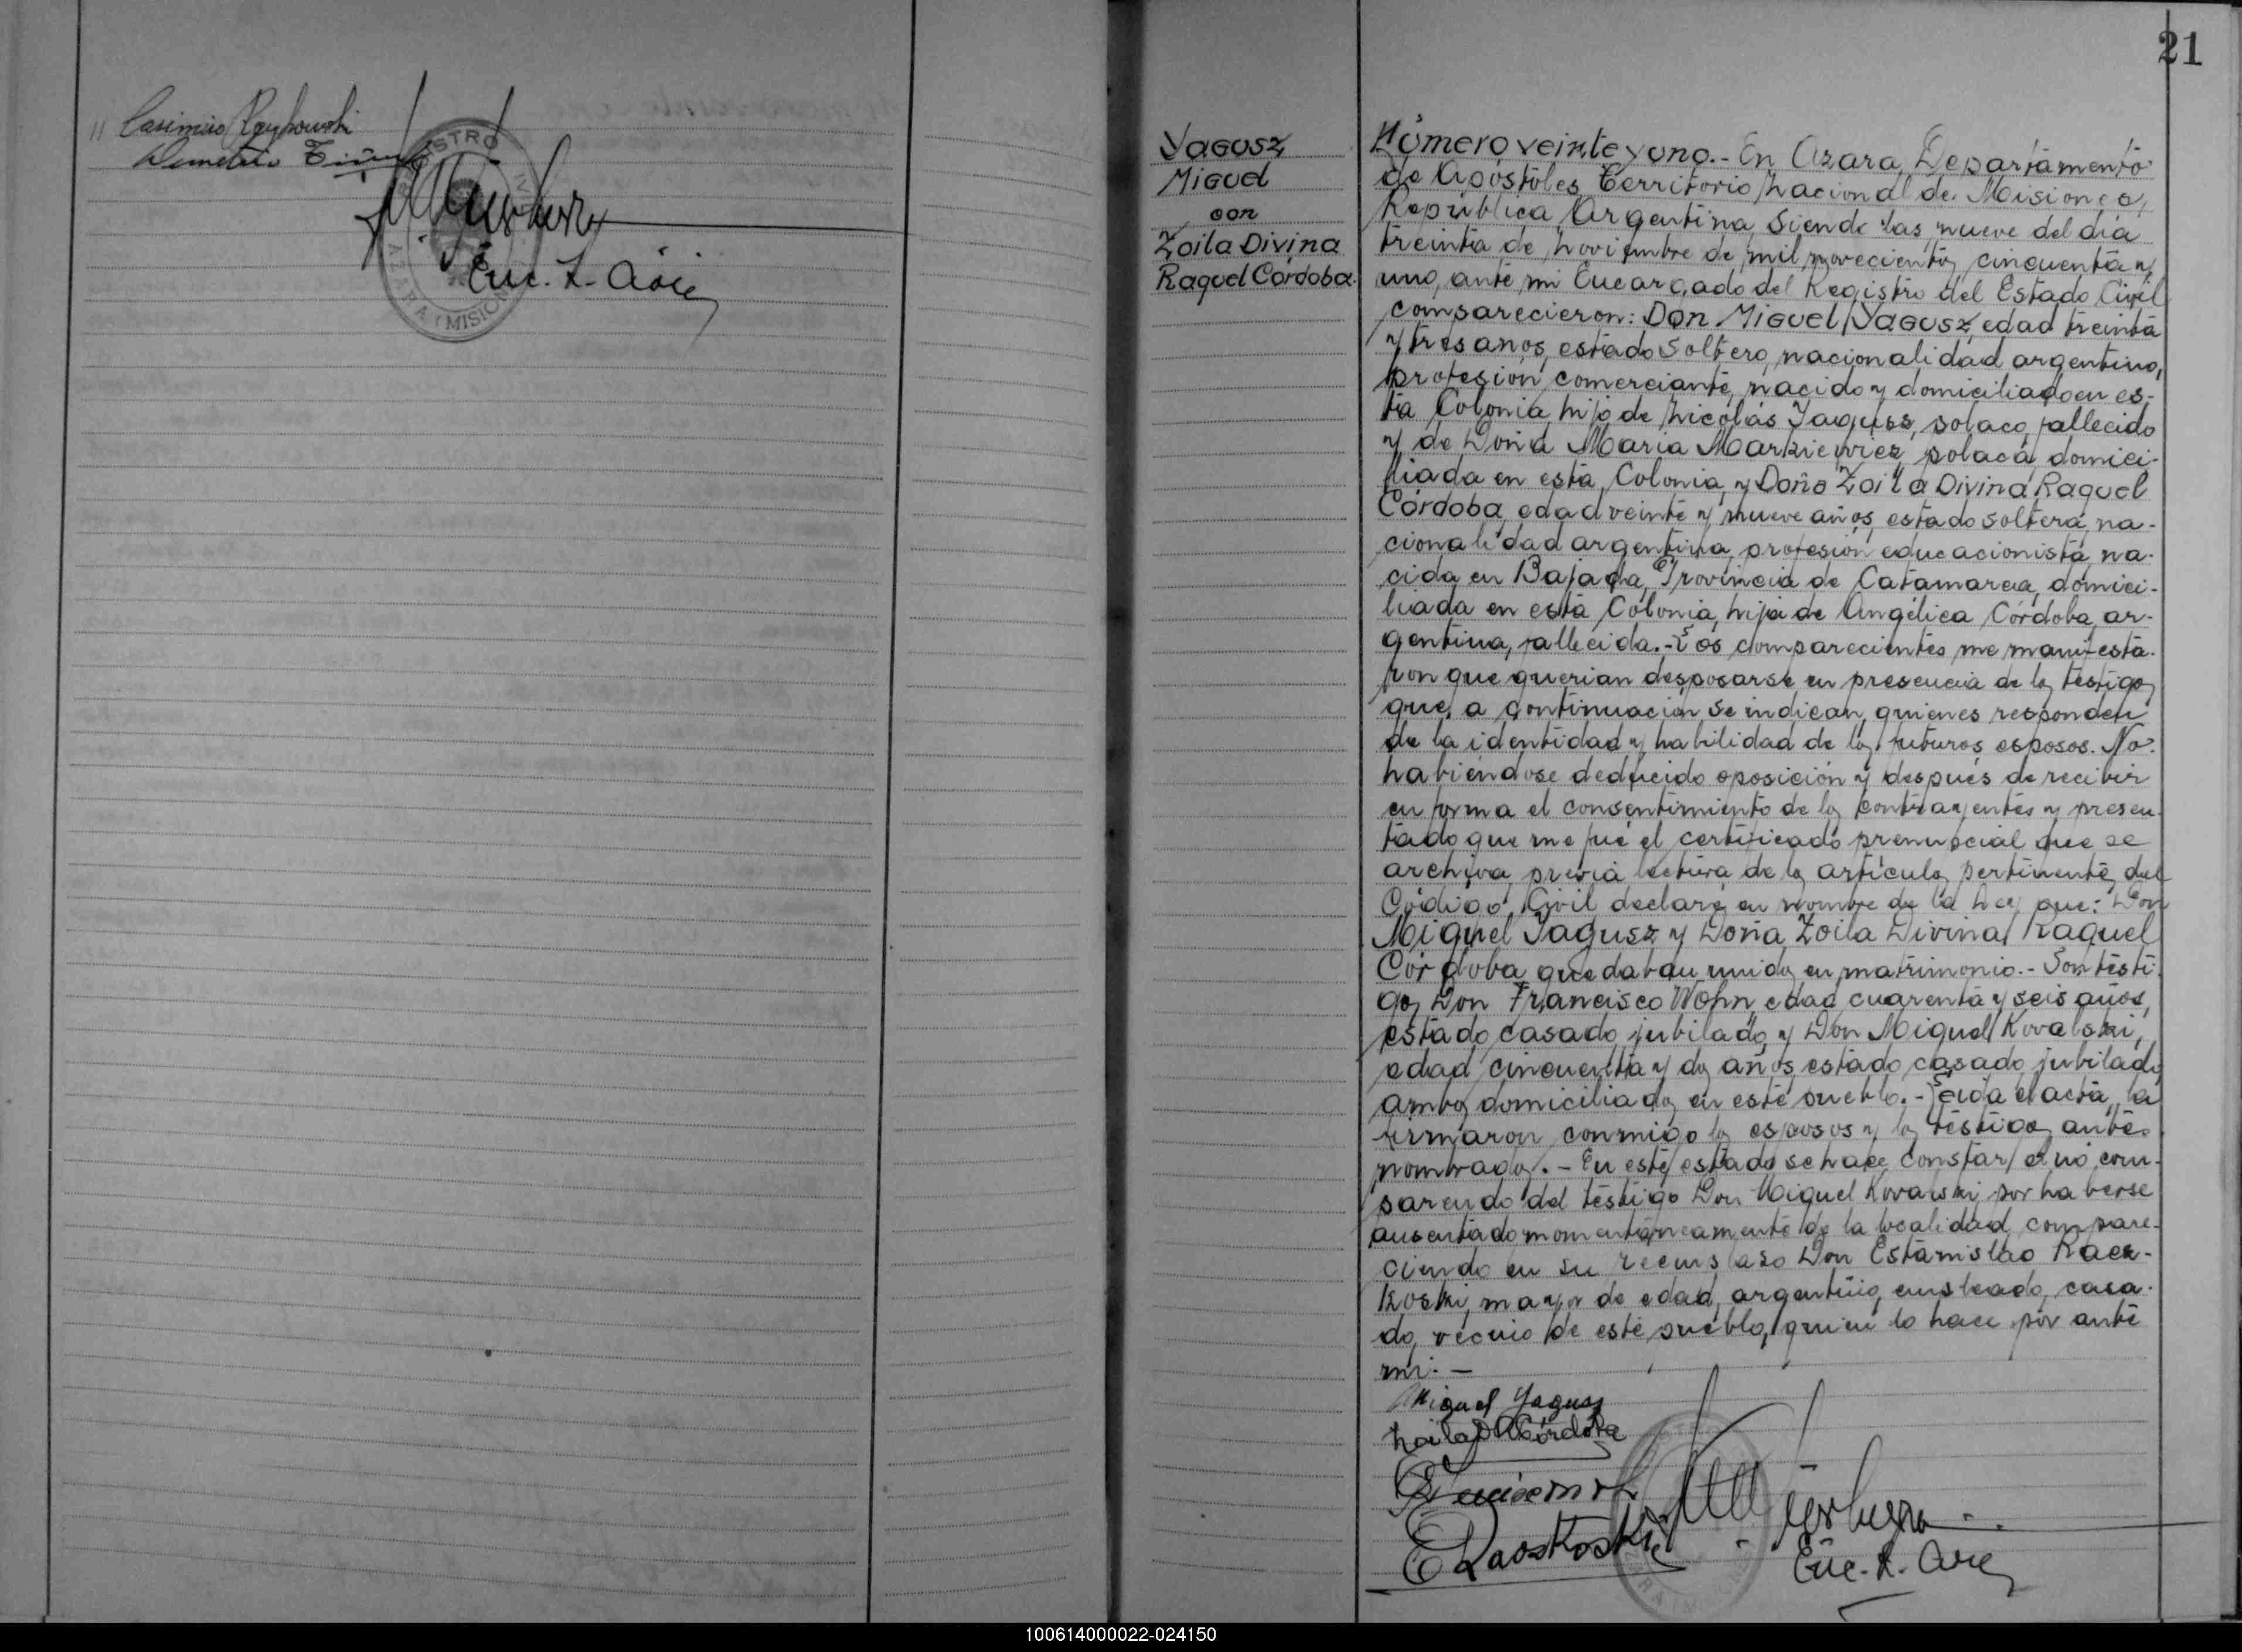 Casimiro
Demetrio
REGISTRO CIVIL
AZARA (MISIONES)
21
Yagusz
Miguel
con
Zoila Divina
Raquel Córdoba.
Número veinte y uno.- En Azara, Departamento
de Apóstoles, Territorio Nacional de Misiones,
República Argentina, siendo las nueve del día
treinta de noviembre de mil novecientos cincuenta y
uno, ante mi Encargado del Registro del Estado Civil
comparecieron: Don Miguel Yagusz, edad treinta
y tres años, estado soltero, nacionalidad argentino,
profesión comerciante, nacido y domiciliado en es-
ta Colonia, hijo de Nicolás Yagusz, polaco, fallecido
y de Doña María Markiewicz, polaca, domici-
liada en esta Colonia, y Doña Zoila Divina Raquel
Córdoba, edad veinte y nueve años, estado soltera, na-
cionalidad argentina, profesión educacionista, na-
cida en Bajada, Provincia de Catamarca, domici-
liada en esta Colonia, hija de Angélica Córdoba, ar-
gentina, fallecida.- Los comparecientes me manifesta-
ron que querían desposarse en presencia de los testigos
que, a continuación se indican, quienes responden
de la identidad y habilidad de los futuros esposos. No
habiéndose deducido oposición y después de recibir
en forma el consentimiento de los contrayentes y presen-
tado que me fué el certificado prenupcial que se
archiva, previa lectura de los artículos pertinentes del
Código Civil declaré en nombre de la Ley que: Don
Miguel Yagusz y Doña Zoila Divina Raquel
Córdoba quedaban unidos en matrimonio.- Son testi-
gos Don Francisco Wohn, edad cuarenta y seis años,
estado casado, jubilado, y Don Miguel Kovalski,
edad cincuenta y dos años, estado casado, jubilado,
ambos domiciliados en este pueblo.- Leida el acta, la
firmaron conmigo los esposos y los testigos antes
nombrados.- En este estado se hace constar el no com-
parendo del testigo Don Miguel Kovalski por haberse
ausentado momentáneamente de la localidad, compare-
ciendo en su reemplazo Don Estanislao Racz-
koski, mayor de edad, argentino, empleado, casa-
do, vecino de este pueblo, quien lo hace por ante
mi.-
Miguel Yagusz
Zoila D R Córdoba
100614000022-024150